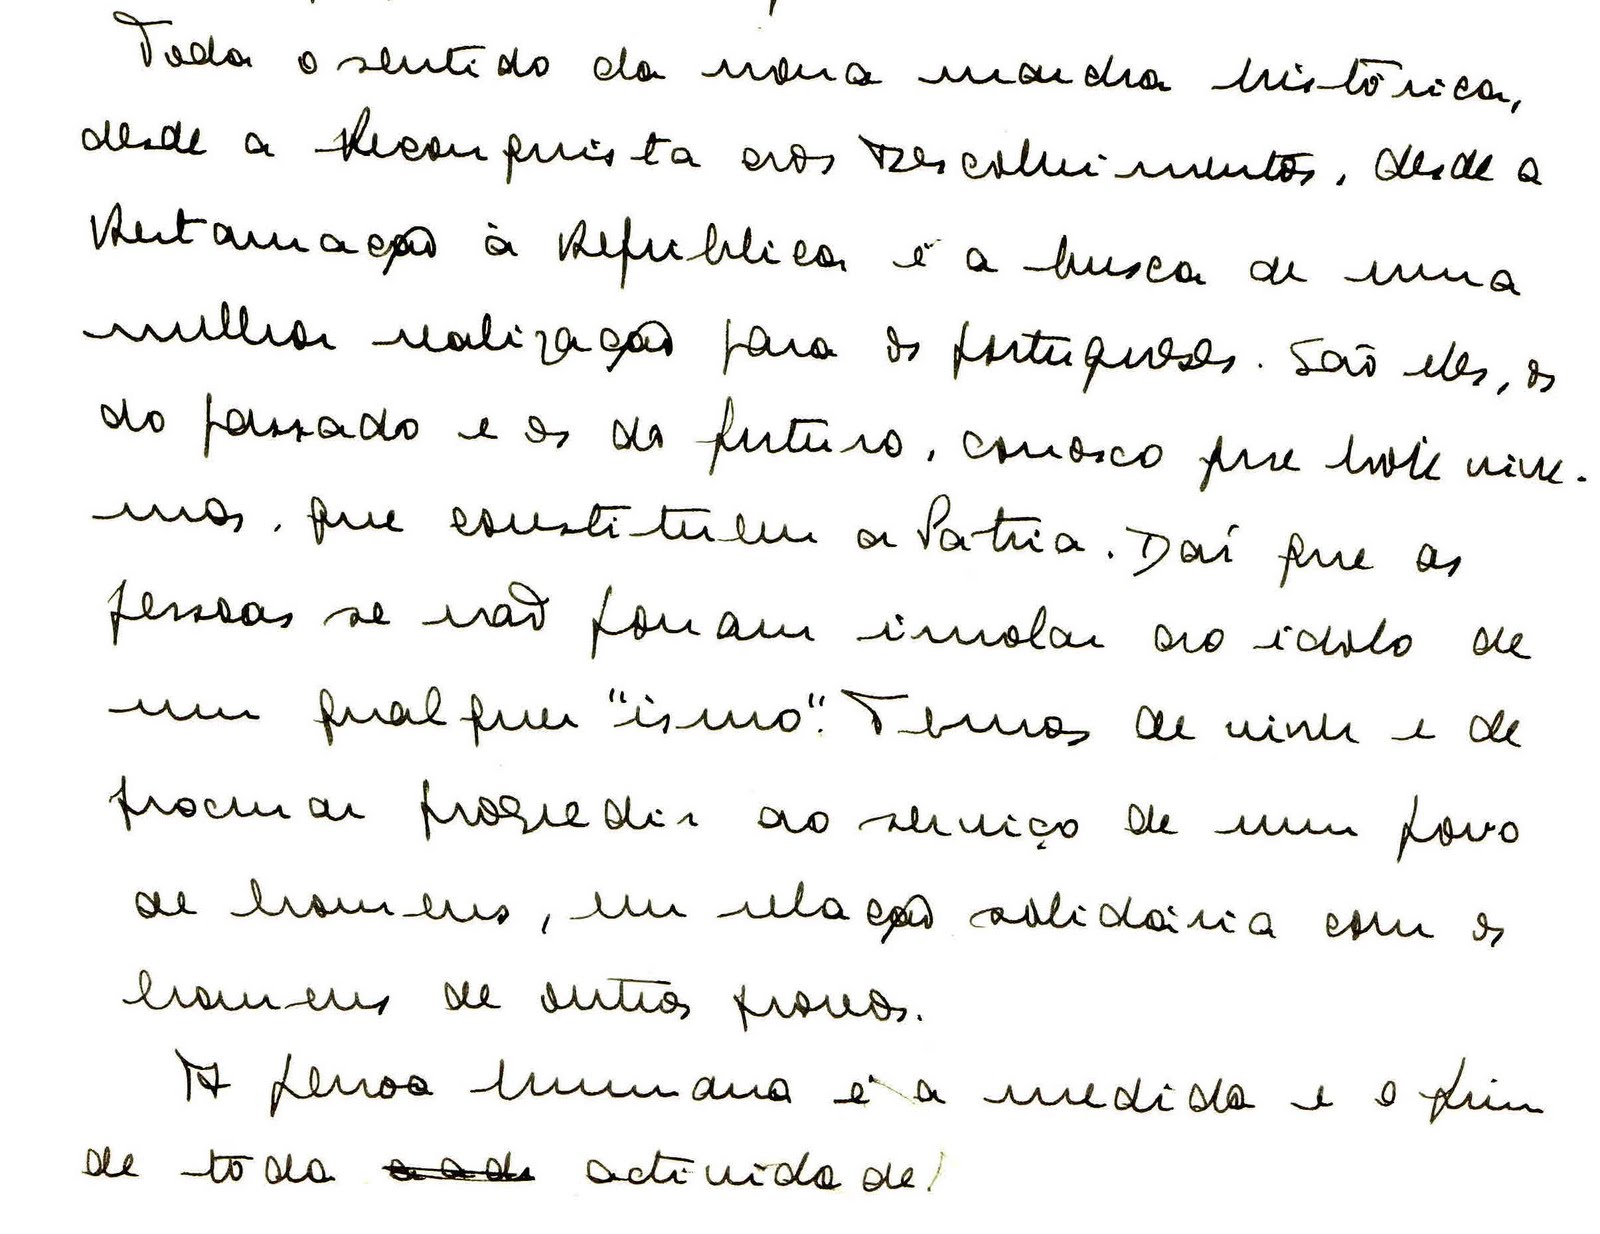 Todo o sentido da nova marcha histórica,
desde a Reconquista aos Descobrimentos, desde a
Restauração à República é a busca de uma
melhor realização para os portugueses. São eles, os
do passado e os do futuro, conosco que hoje vive-
mos, que constituem a Pátria. Daí que as
pessoas se não possam imolar ao idolo de
um qualquer "ismo". Temos de viver e de
procurar progredir ao serviço de um povo
de homens, em relação solidária com os
homens de outros povos.
A pessoa humana é a medida e o fim
de toda actividade!